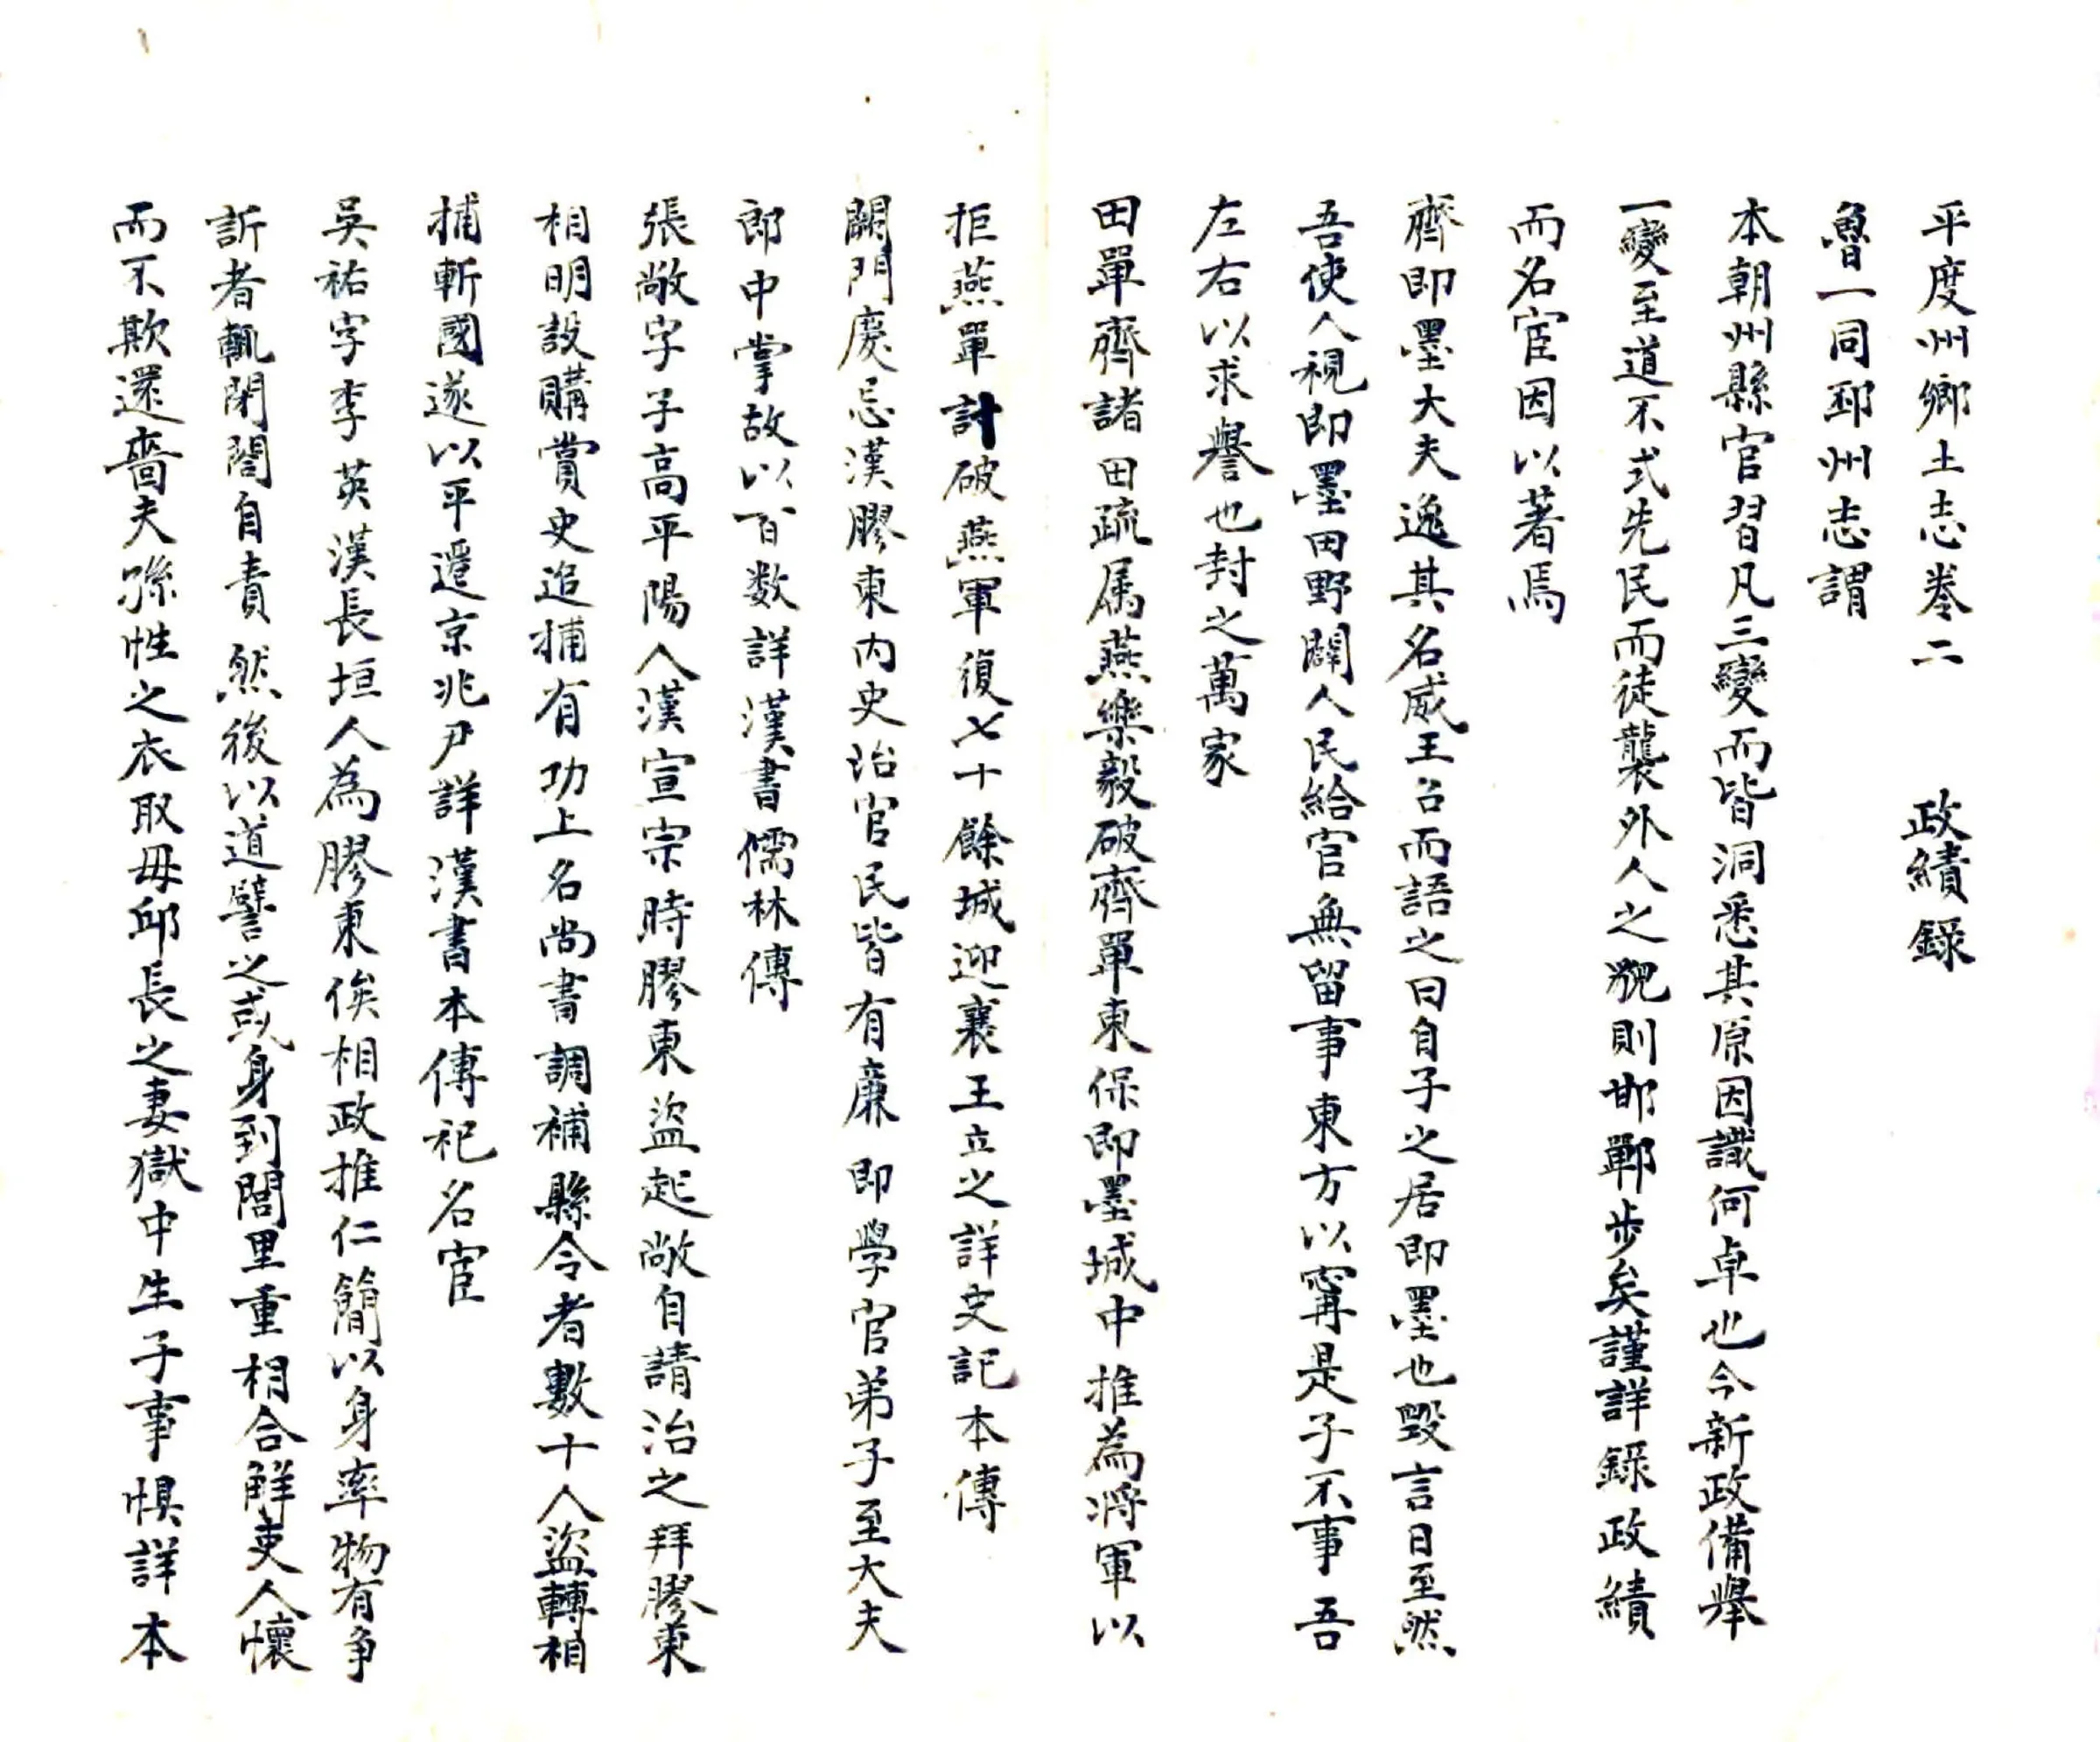 平度州鄉土志卷二　政績錄
魯一同邳州志謂
本朝州縣官習凡三變而皆洞悉其原因識何卓也今新政備舉
一變至道不式先民而徒襲外人之貌則邯鄲步矣謹詳錄政績
而名宦因以著焉
齊即墨大夫逸其名威王召而語之曰自子之居即墨也毀言日至然
吾使人視即墨田野闢人民給官無留事東方以寗是子不事吾
左右以求譽也封之萬家
田單齊諸田疏属燕樂毅破齊單東保即墨城中推為將軍以
拒燕單討破燕軍復七十餘城迎襄王立之詳史記本傳
闕門慶忌漢膠東內史治官民皆有廉即學官弟子至大夫
郎中掌故以百数詳漢書儒林傳
張敞字子高平陽人漢宣宗時膠東盜起敞自請治之拜膠東
相明設購賞史追捕有功上名尚書調補縣令者數十人盜轉相
捕斬國遂以平遷京兆尹詳漢書本傳祀名宦
吳祐字季英漢長垣人為膠東侯相政推仁簡以身率物有爭
訴者輒閉閤自責然後以道譬之或身到閭里重相合解吏人懷
而不欺還嗇夫孫性之衣取毋邱長之妻獄中生子事惧詳本